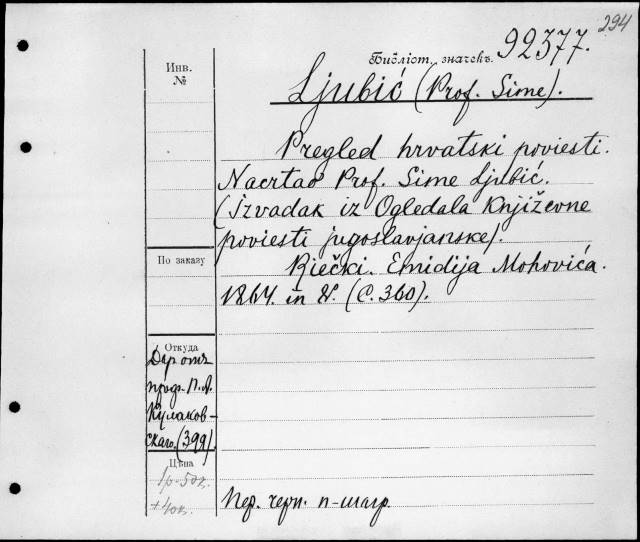 294
Библіот. значекъ. 92377.
Инв.
№
Ljubić (Prof. Sime).
Pregled hrvatski poviesti.
Nacrtao Prof. Sime Ljubić.
(Izvadak iz Ogledala Književne
poviesti jugoslavjanske).
По заказу
Riečki. Emidija Mohovića.
1864. in 8. (C. 360).
Откуда
Дар отъ
проф. П. А.
Кулаков-
скаго. (399).
Цѣна
1р-50к.
+40к.
Пер. черн. п-шагр.